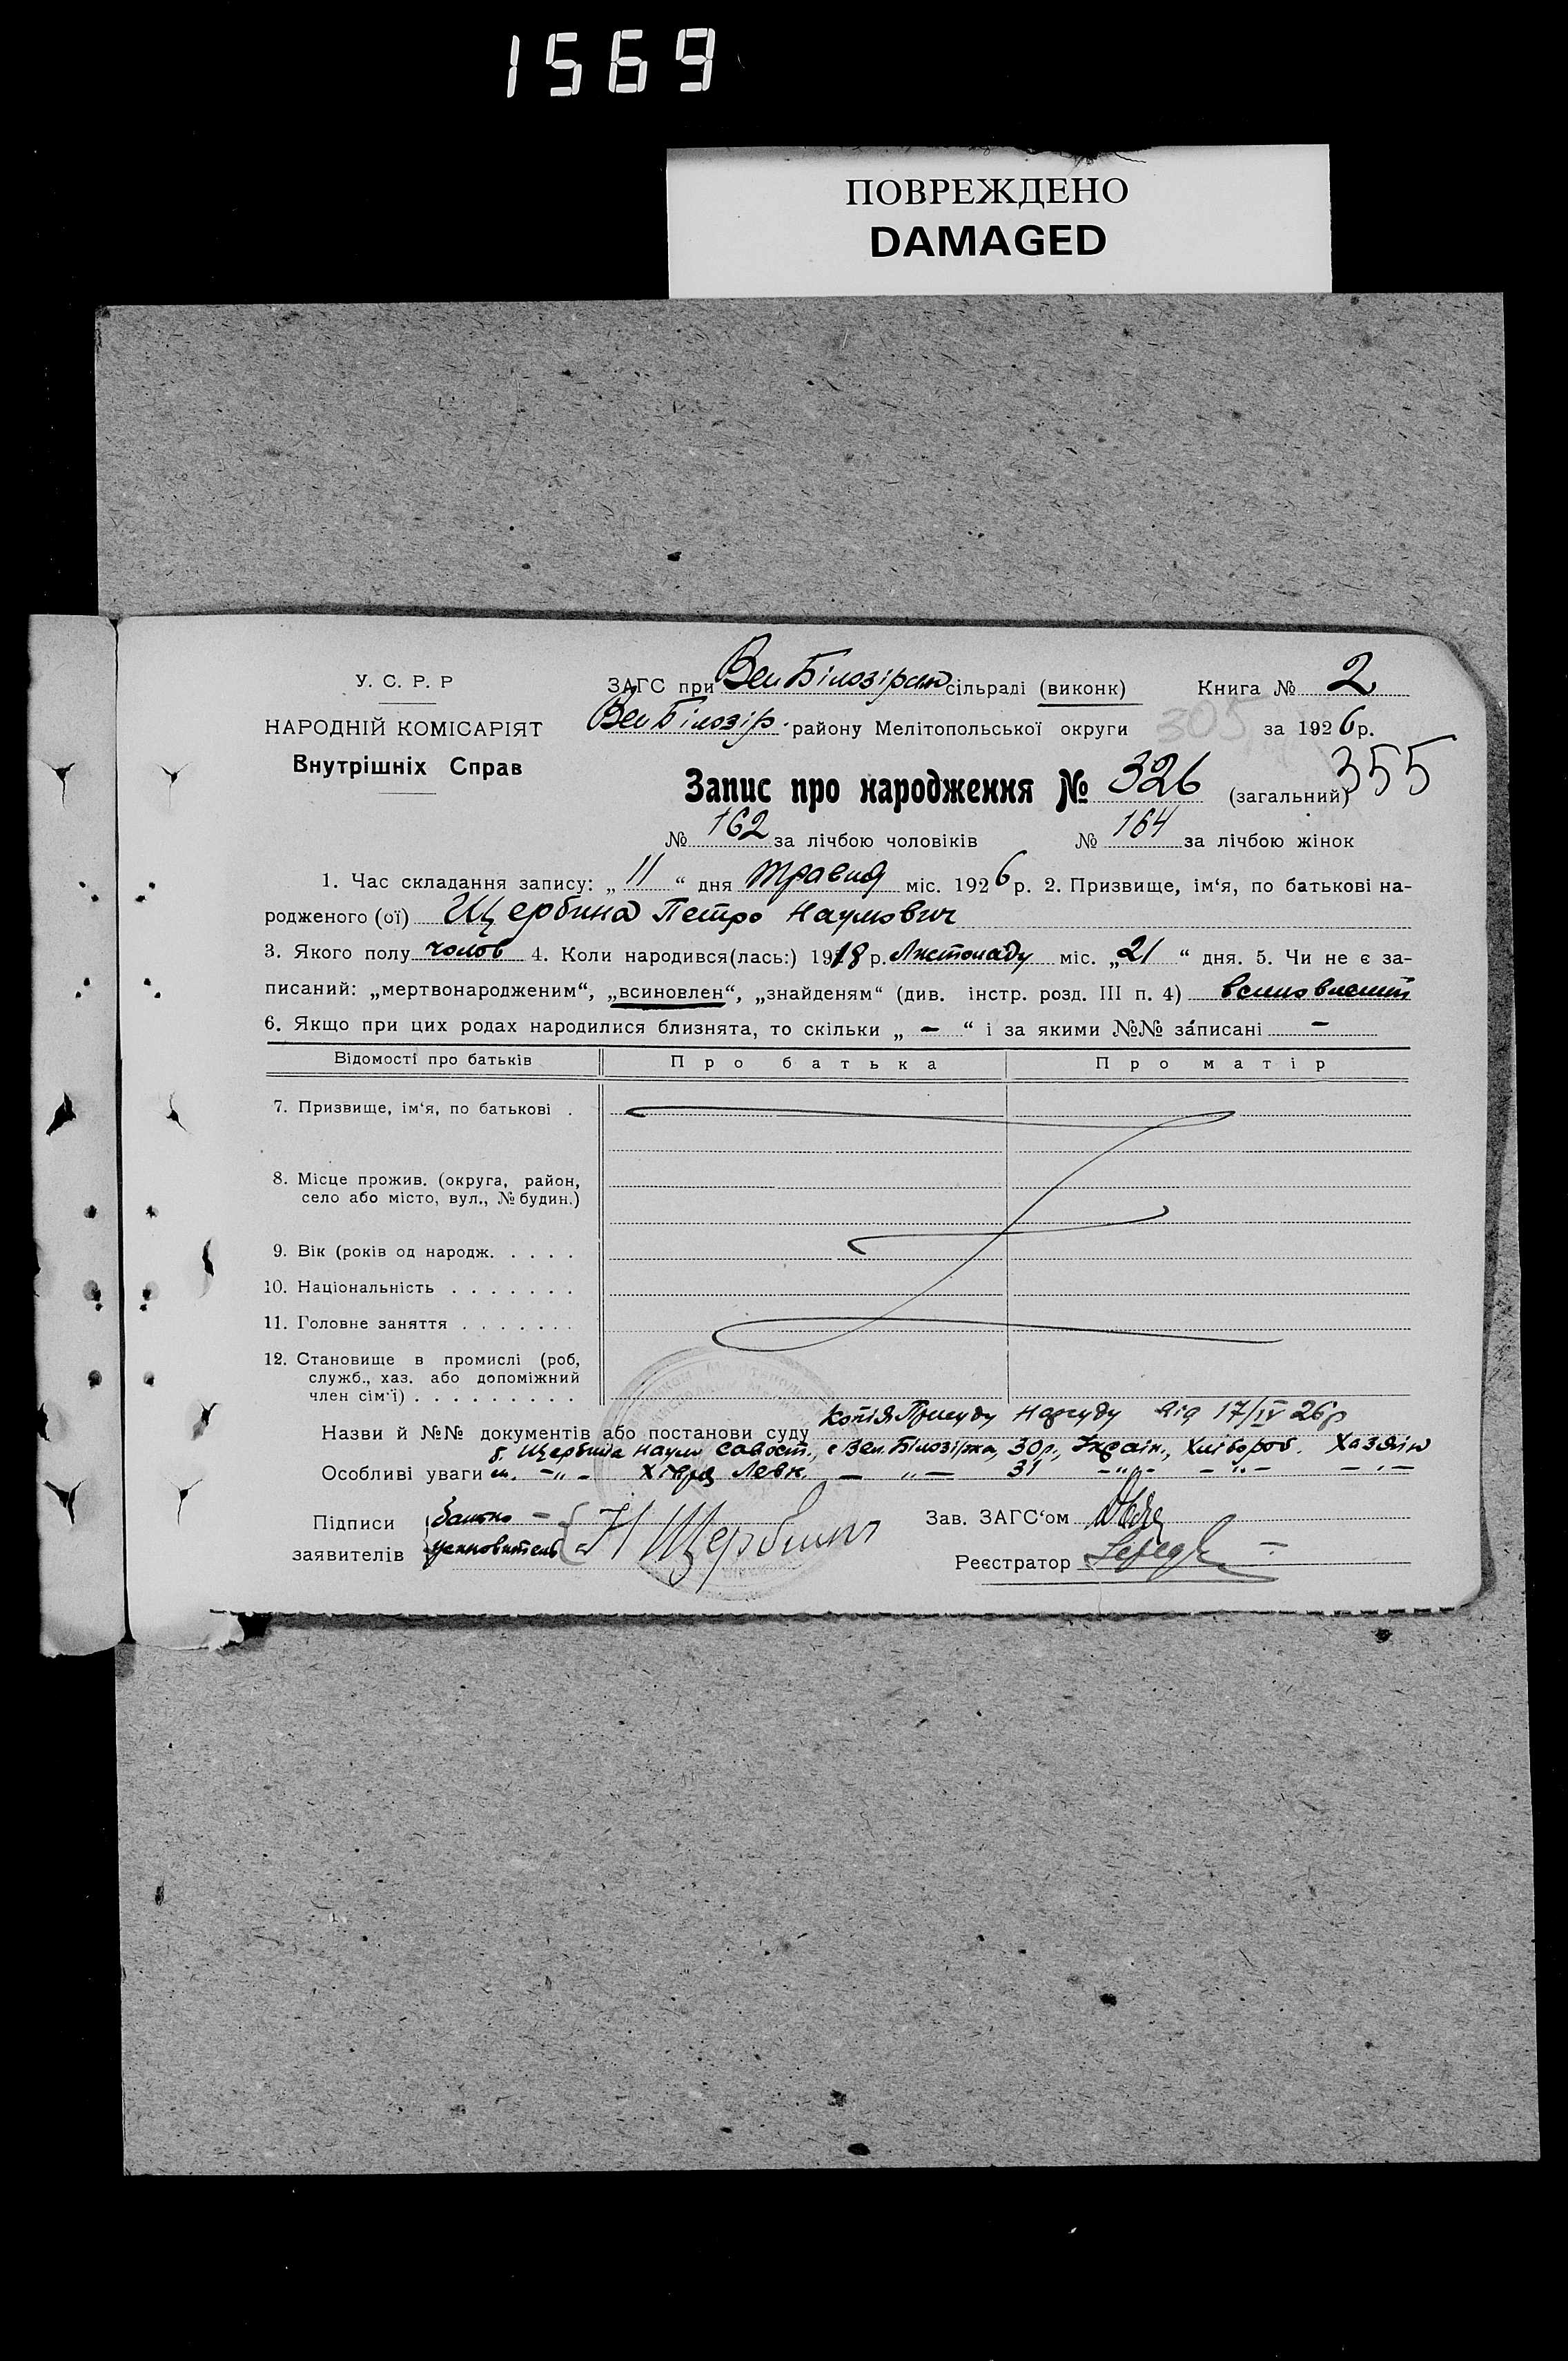 1569
ПОВРЕЖДЕНО
DAMAGED
У. С. Р. Р
НАРОДНІЙ КОМІСАРІЯТ
Внутрішніх Справ
ЗАГС при Вел Білозірськ сільраді (виконк) Книга № 2
Вел Білозір. району Мелітопольської округи 305 за 1926 р.
355
Запис про народження № 326 (загальний)
№ 162 за лічбою чоловіків № 164 за лічбою жінок
1. Час складання запису: „ 11 “ дня травня міс. 1926 р. 2. Призвище, ім‘я, по батькові на-
родженого (ої) Щербина Петро Наумович
3. Якого полу чолов 4. Коли народився(лась:) 1918 р. Листопаду міс. „ 21 “ дня. 5. Чи не є за-
писаний: „мертвонародженим“, „всиновлен“, „знайденям“ (див. інстр. розд. III п. 4) всиновлений
6. Якщо при цих родах народилися близнята, то скільки „ – “ і за якими №№ записані –
Відомості про батьків Про батька Про матір
7. Призвище, ім‘я, по батькові .
8. Місце прожив. (округа, район,
село або місто, вул., № будин.)
9. Вік (років од народж. . . . .
10. Національність . . . . . . .
11. Головне заняття . . . . . . .
12. Становище в промислі (роб,
служб., хаз. або допоміжний
член сім‘ї) . . . . . . . . . .
Назви й №№ документів або постанови суду Копія Присуду Нарсуду від 17/IV 26 р
б. Щербина Наум Савост., с Вел. Білозірка, 30 р., Україн., Хлібороб. Хазяїн
Особливі уваги м. –„– Левк. – „ – 31 –„– –„– –„–
Підписи батько –
заявителів усиновитель Н Щербина
Зав. ЗАГС‘ом
Реєстратор